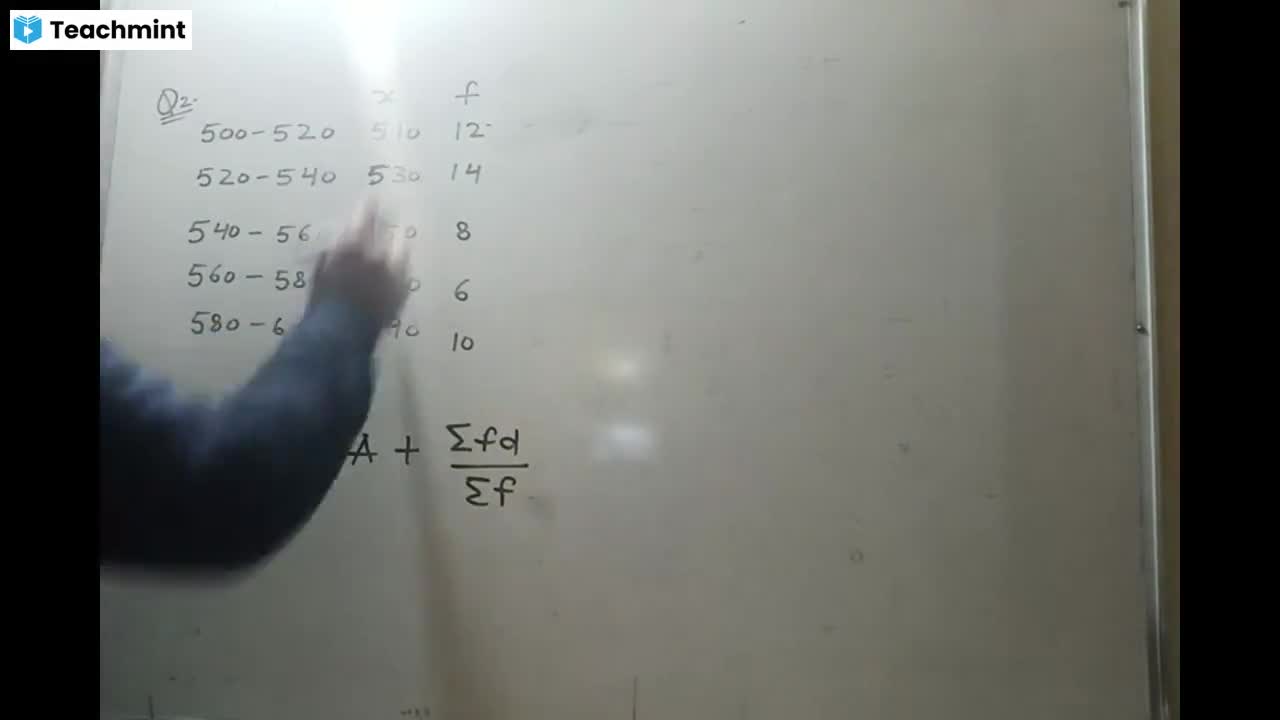 Teachmint
Q2.
x f
500-520 510 12
520-540 530 14
540-56 50 8
560-58 0 6
580-6 90 10
A + Σfd
Σf